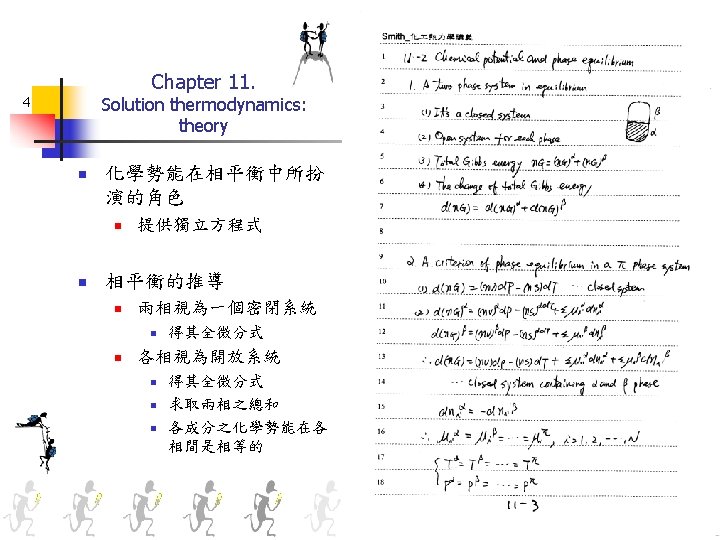 Chapter 11.
4
Solution thermodynamics:
theory
化學勢能在相平衡中所扮
演的角色
提供獨立方程式
相平衡的推導
兩相視為一個密閉系統
得其全微分式
各相視為開放系統
得其全微分式
求取兩相之總和
各成分之化學勢能在各
相間是相等的
Smith_化工熱力學講義
1 11-2 Chemical potential and phase equilibrium
2 1. A two phase system in equilibrium
3 (1) It's a closed system
β
α
4 (2) Open system for each phase
5 (3) Total Gibbs energy nG = (nG)^α + (nG)^β
6 (4) The change of total Gibbs energy
7 d(nG) = d(nG)^α + d(nG)^β
8
9 2. A criterion of phase equilibrium in a π phase system
10 (1) d(nG) = (nV)dP - (nS)dT ... closed system
11
12
13
14 ... closed system containing α and β phase
15
16 ∴ μᵢ^α = μᵢ^β = ... = μᵢ^π, i = 1, 2, ... N
17 T^α = T^β = ... = T^π
18 P^α = P^β = ... = P^π
11-3